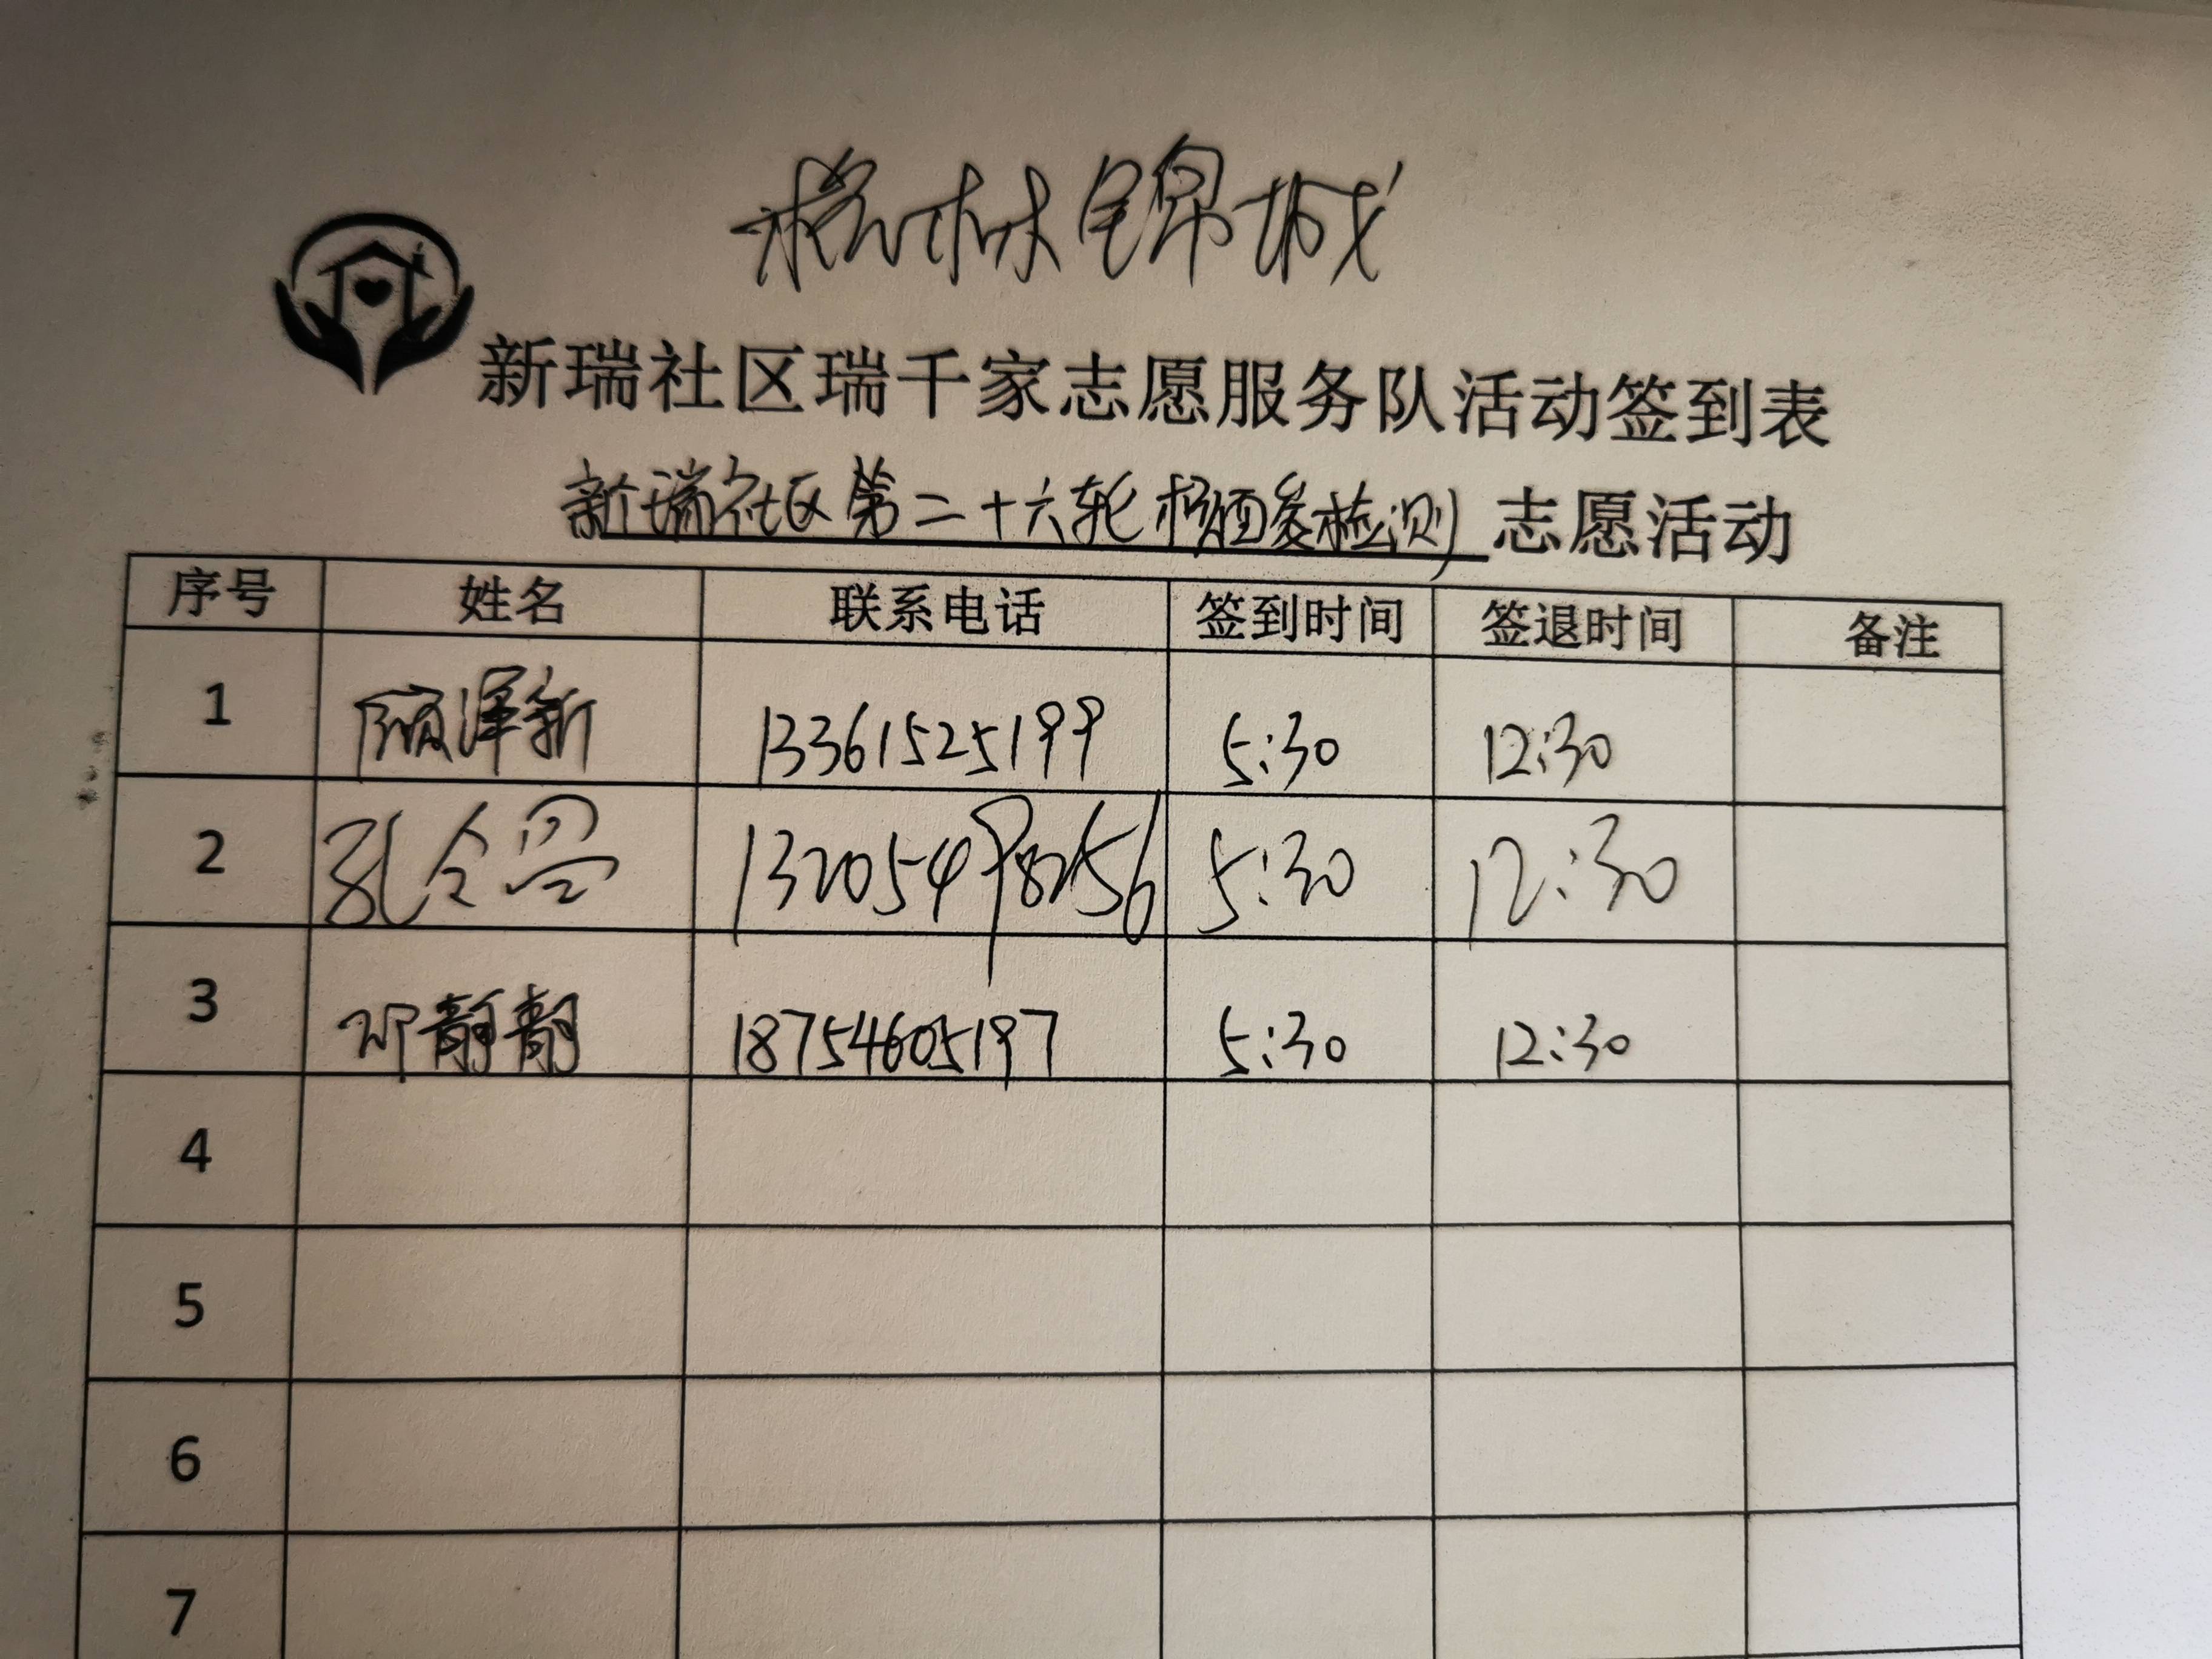 林锦城
新瑞社区瑞千家志愿服务队活动签到表
新瑞社区第二十六轮核酸检测志愿活动
序号 姓名 联系电话 签到时间 签退时间 备注
1 顾泽新 13361525199 5:30 12:30
2 孔令 13205498256 5:30 12:30
3 邓静静 18754605197 5:30 12:30
4
5
6
7